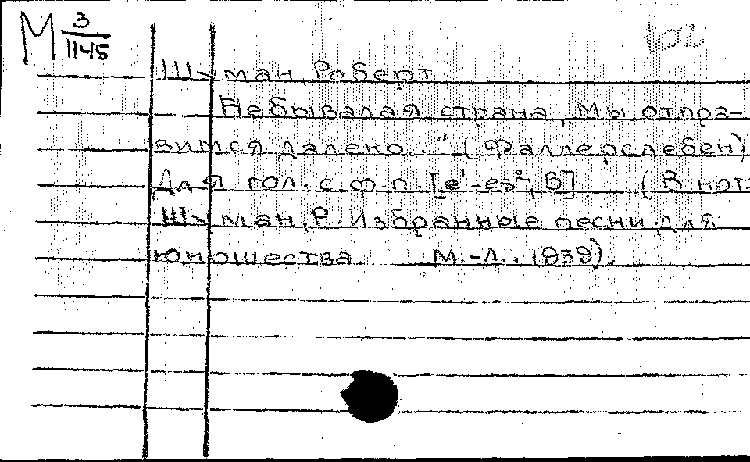 М 3/1145
Шуман, Роберт
Небывалая страна „Мы отпра-
вимся далеко..." (Фаллерслебен)
Для гол. с ф-п. [e¹-es², B] (В нот.
Шуман, Р. Избранные песни для
юношества. М.-Л., 1939).